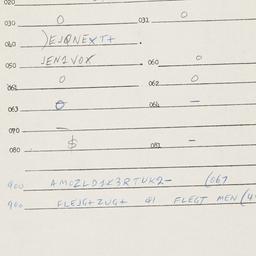 020
030 0 031 0
040 )EJQNEXT+ .
050 JEN1VOX . 060 0
061 0 062 0
063 0 064 -
070 -
080 $ 081 -
900 AMOZLD1K3RTUK2- (067
900 FLEJG+ZUG+ 41 FLEGT MEN (4